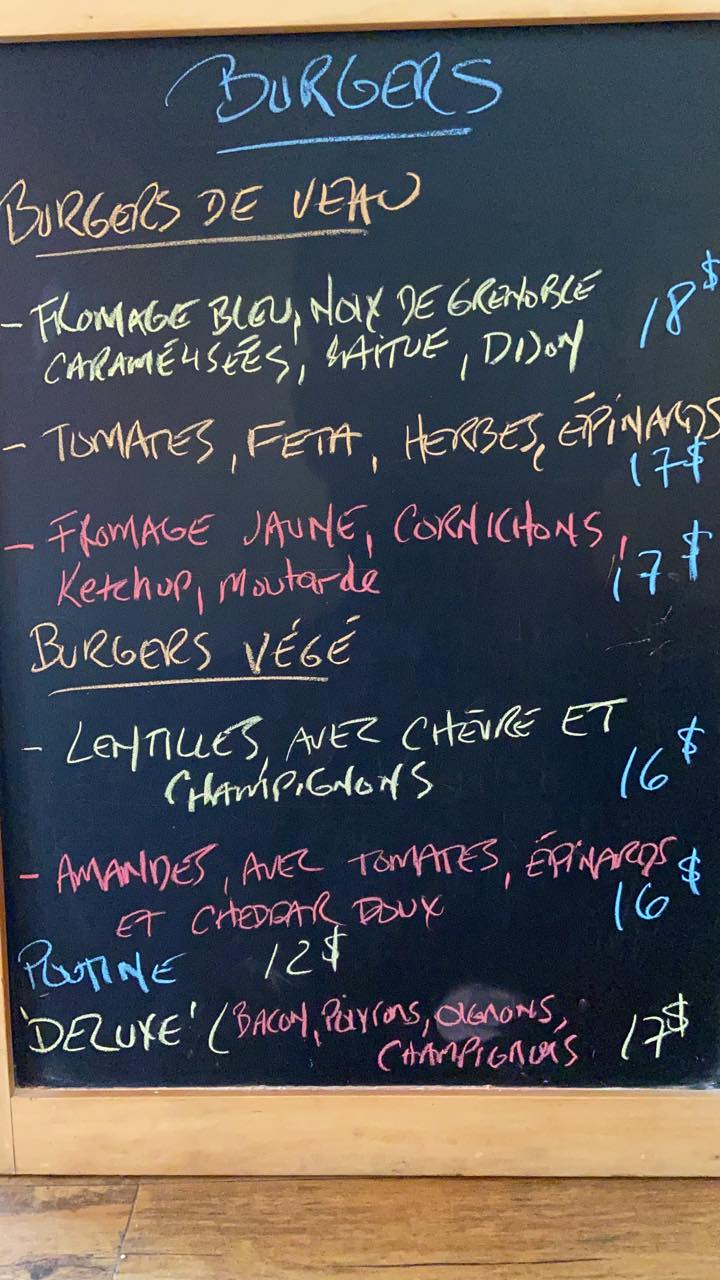 BURGERS
BURGERS DE VEAU
- FROMAGE BLEU, NOIX DE GRENOBLE 18$
CARAMÉLISÉES, LAITUE, DIJON
- TOMATES, FETA, HERBES, ÉPINARDS
17$
- FROMAGE JAUNE, CORNICHONS,
Ketchup, moutarde 17$
BURGERS VÉGÉ
- LENTILLES, AVEC CHÈVRE ET
CHAMPIGNONS 16$
- AMANDES, AVEC TOMATES, ÉPINARDS
ET CHEDDAR DOUX 16$
POUTINE 12$
'DELUXE' (BACON, POIVRONS, OIGNONS,
CHAMPIGNONS 17$